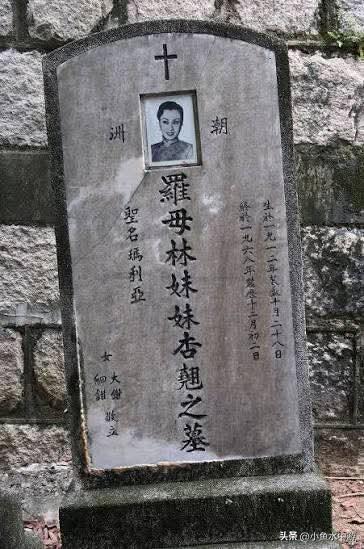 朝洲
生於一九一二年農曆十月二十八日
終於一九六八年農曆十二月初二日
羅母林妹妹杏翹之墓
聖名瑪利亞
女 大 細 敬立
头条 @小鱼水中游